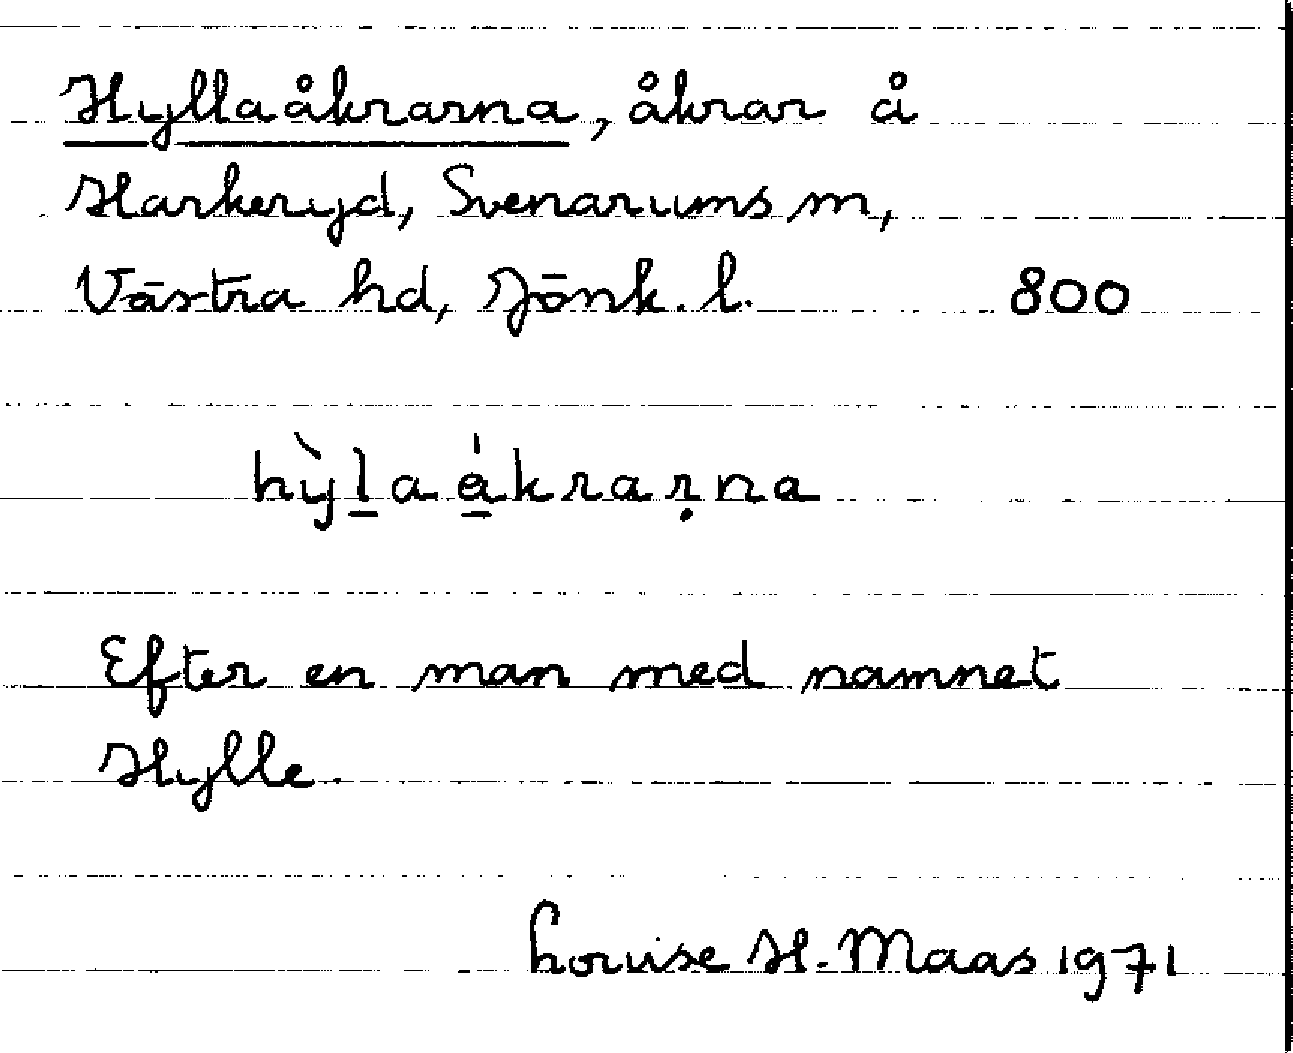 Hyllaåkrarna, åkrar å
Harkeryd, Svenarums sn,
Västra hd, Jönk. l. 800
hỳl̲aa̲̍krarṇa
Efter en man med namnet
Hylle.
Louise H. Maas 1971